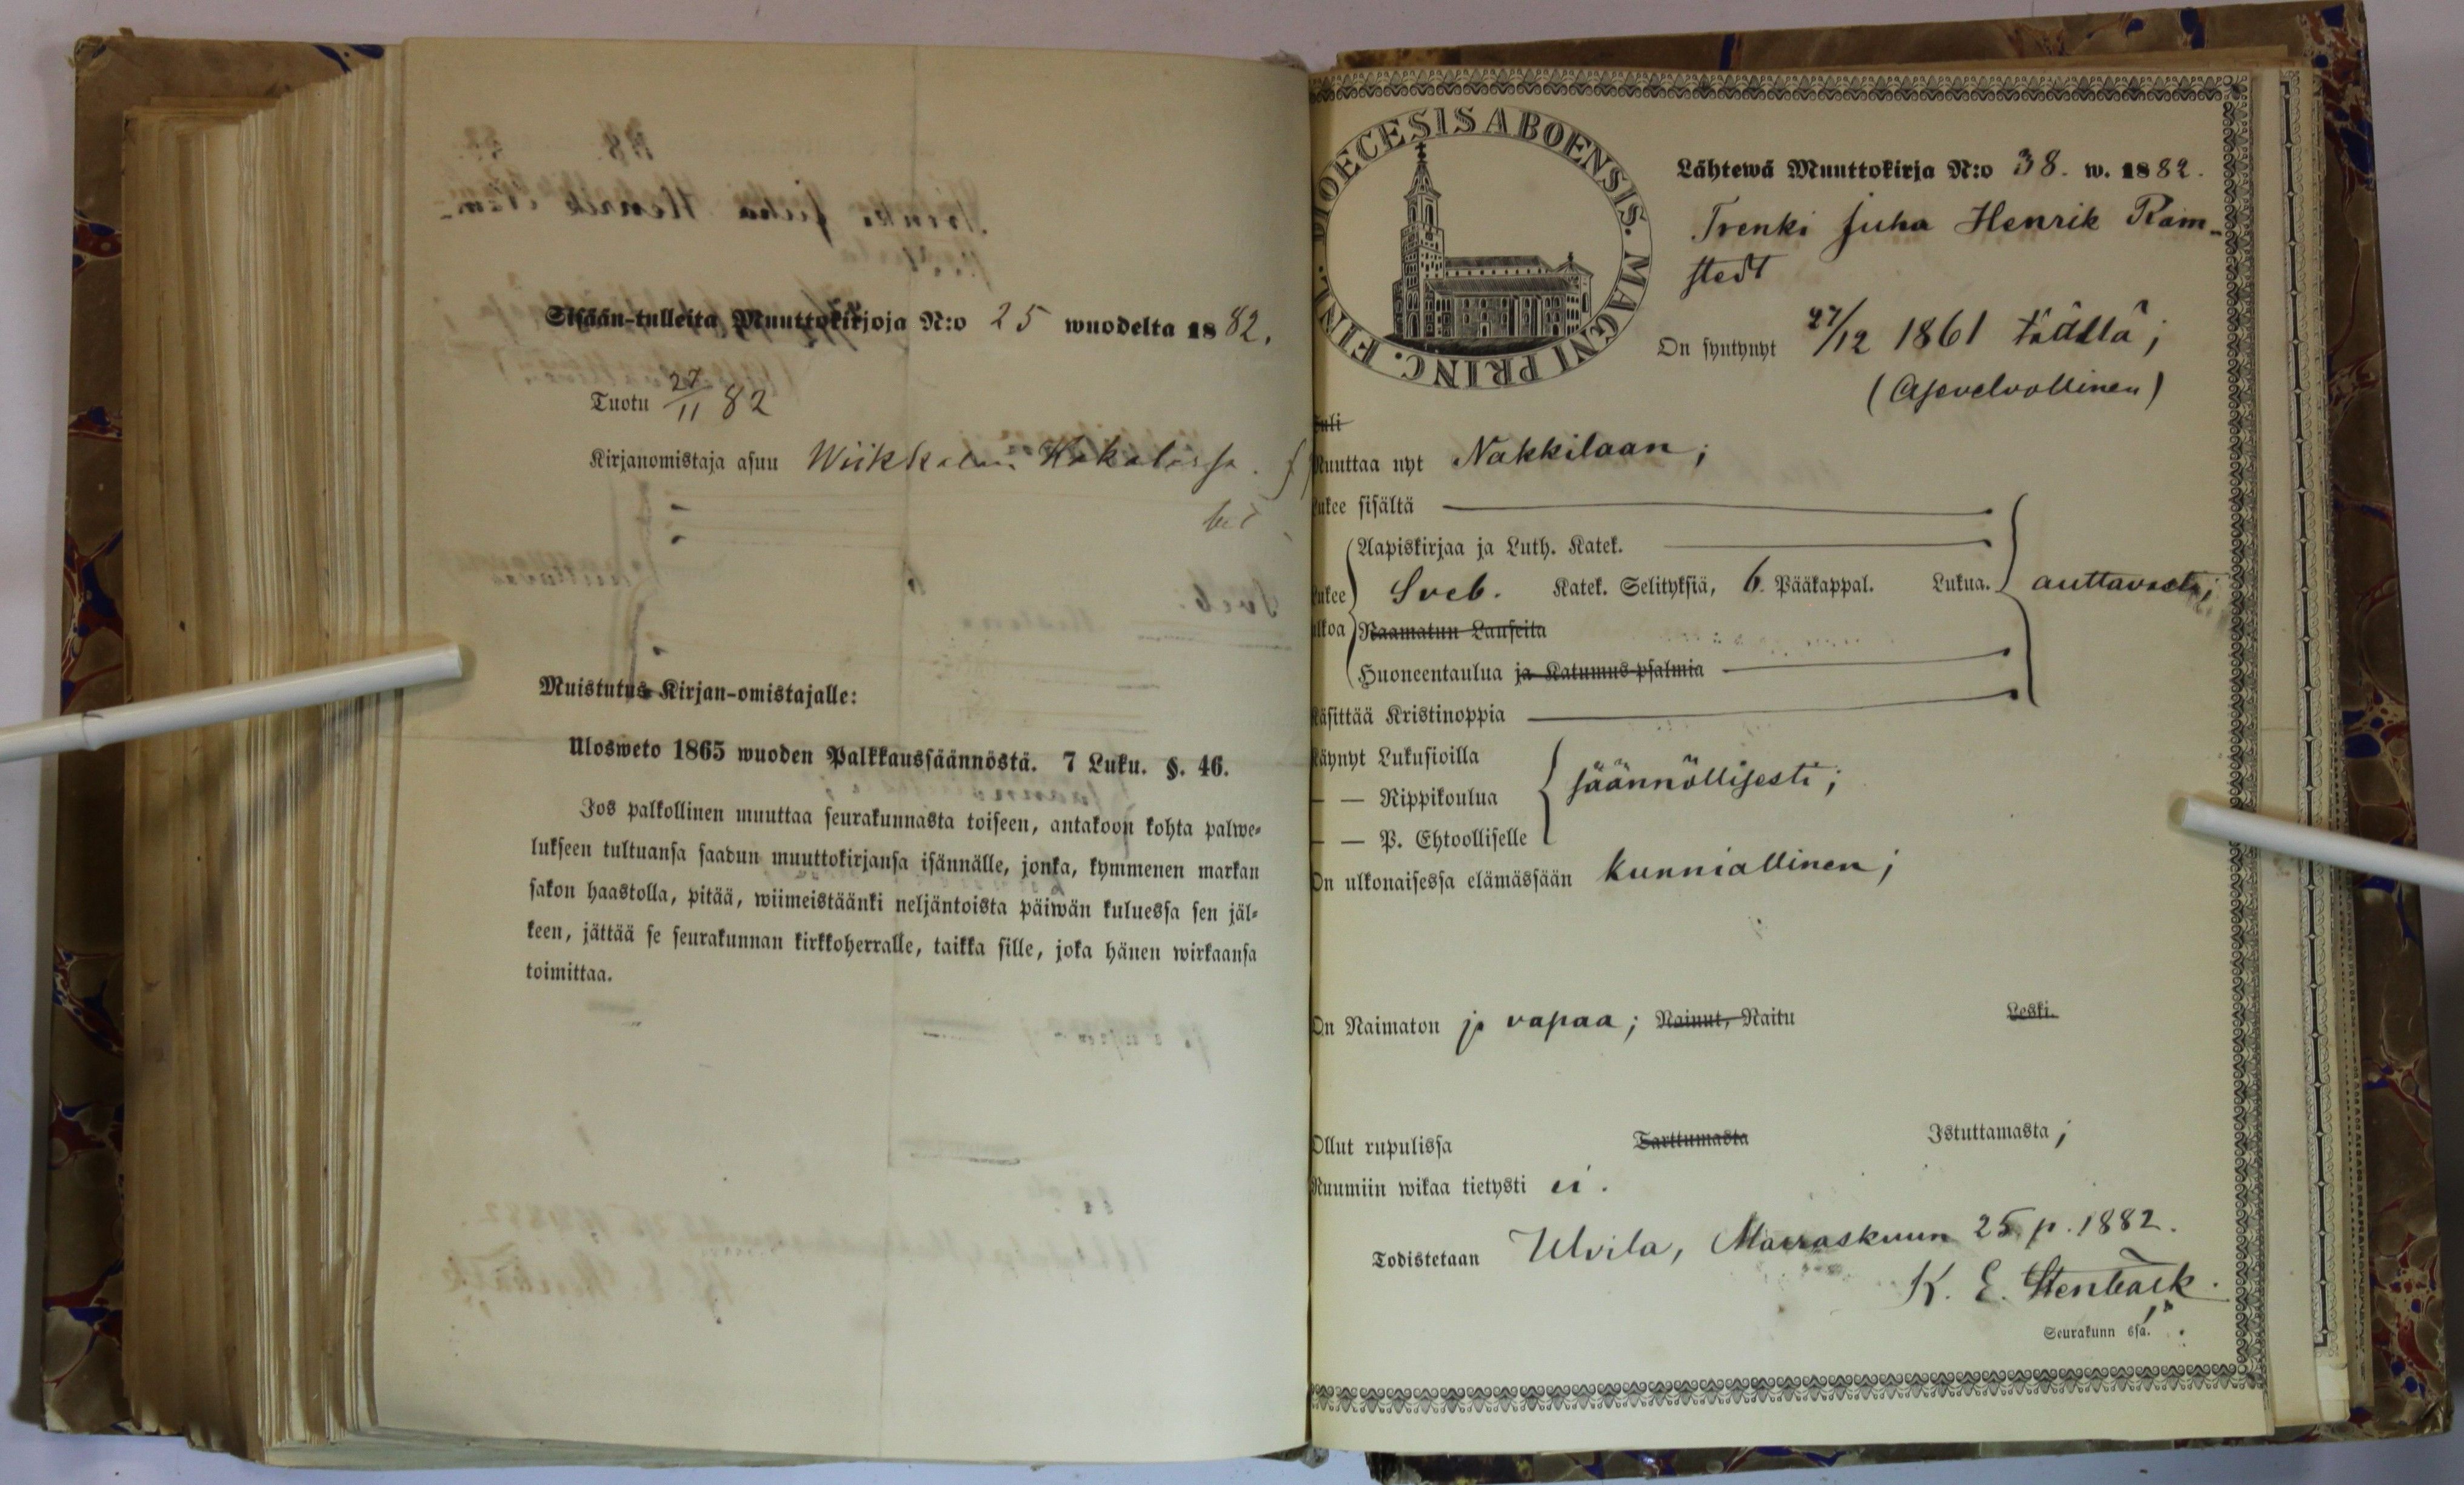 Sisään-tulleita Muuttokirjoja N:o 25 wuodelta 1882.
Tuotu 27/11 82
Kirjanomistaja asuu
Muistutus Kirjan-omistajalle:
Ulosweto 1865 wuoden Palkkaussäännöstä. 7 Luku. §. 46.
Jos palkollinen muuttaa seurakunnasta toiseen, antakoon kohta palwe-
lukseen tultuansa saadun muuttokirjansa isännälle, jonka, kymmenen markan
sakon haastolla, pitää, wiimeistäänki neljäntoista päiwän kuluessa sen jäl-
keen, jättää se seurakunnan kirkkoherralle, taikka sille, joka hänen wirkaansa
toimittaa.
DIOECESIS ABOENSIS. MAGNI PRINC. FINL.
Lähtewä Muuttokirja N:o 38. w. 1882.
Trenki Juha Henrik Ram-
stedt
On syntynyt 27/12 1861 täällä;
(Asevelvollinen)
Tuli
Muuttaa nyt Nakkilaan;
Lukee sisältä
Aapiskirjaa ja Luth. Katek.
Lukee Sveb. Katek. Selityksiä, 6. Pääkappal. Lukua. auttavasti;
ulkoa Raamatun Lauseita
Huoneentaulua ja Katumus-psalmia
Käsittää Kristinoppia
Käynyt Lukusioilla
— — Rippikoulua säännöllisesti;
— — P. Ehtoolliselle
On ulkonaisessa elämässään kunniallinen;
On Naimaton ja vapaa; Nainut, Naitu Leski.
Ollut rupulissa Tarttumasta Istuttamasta;
Ruumiin wikaa tietysti ei.
Todistetaan Ulvila, Marraskuun 25 p. 1882.
K. E. Stenbäck.
Seurakunn ssa.